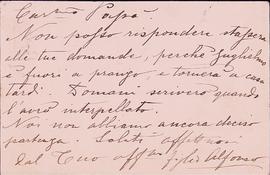 Caro Papà
Non posso rispondere stasera
alle tue domande, perchè Guglielmo
è fuori a pranzo, e tornerà a casa
tardi. Domani scriverò quando
l'avrò interpellato.
Noi non abbiamo ancora deciso
partenza. Saluti affettuosi
dal tuo aff.mo figlio Alfonso